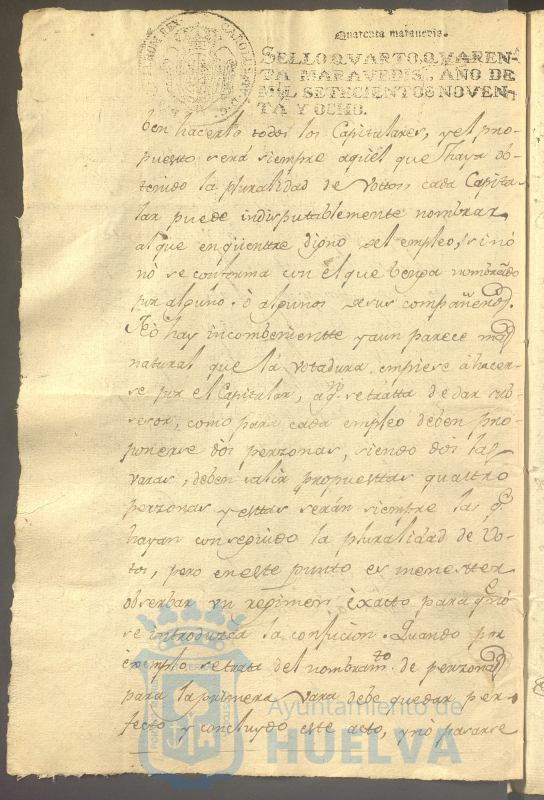 Quarenta maravedis.
SELLO QVARTO, QVAREN-
TA MARAVEDIS, AÑO DE
MIL SETECIENTOS NOVEN-
TA Y OCHO.
ben hacerlo todos los Capitulares, y el pro-
puesto será siempre aquel que haya ob-
tenido la pluralidad de Vottos, cada Capitu-
lar puede indisputtablemente nombrar
al que enqüentre digno del empleo, si nó
nó se conforma con el que benga nombrado
por alguno ò algunos de sus compañeros.
No hay incombeniente y aun parece mas
natural que la votadura empiese á hacer-
se por el Capitular, aqn. se tratta de dar sub-
sesor, como para cada empleo deben pro-
ponerse dos perzonas, siendo dos las
varas, deben salir propuesttas quattro
perzonas y esttas serán siempre las q.e
hayan conseguido la pluralidad de Vo-
tos, pero en este punto es menestter
obserbar un regimen èxacto para q.e nó
se introduzca la confucion. Quando por
èxemplo se trata del nombram.to de perzonas
para la primera vara debe quedar per-
fecto y concluydo este acto, y nó pasarse
Ayuntamiento de
HUELVA